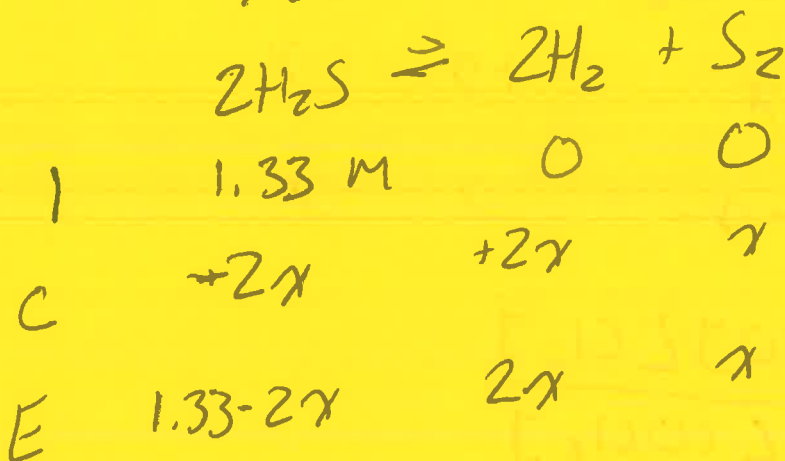 2H₂S ⇌ 2H₂ + S₂
I 1.33 M 0 0
C -2x +2x x
E 1.33-2x 2x x